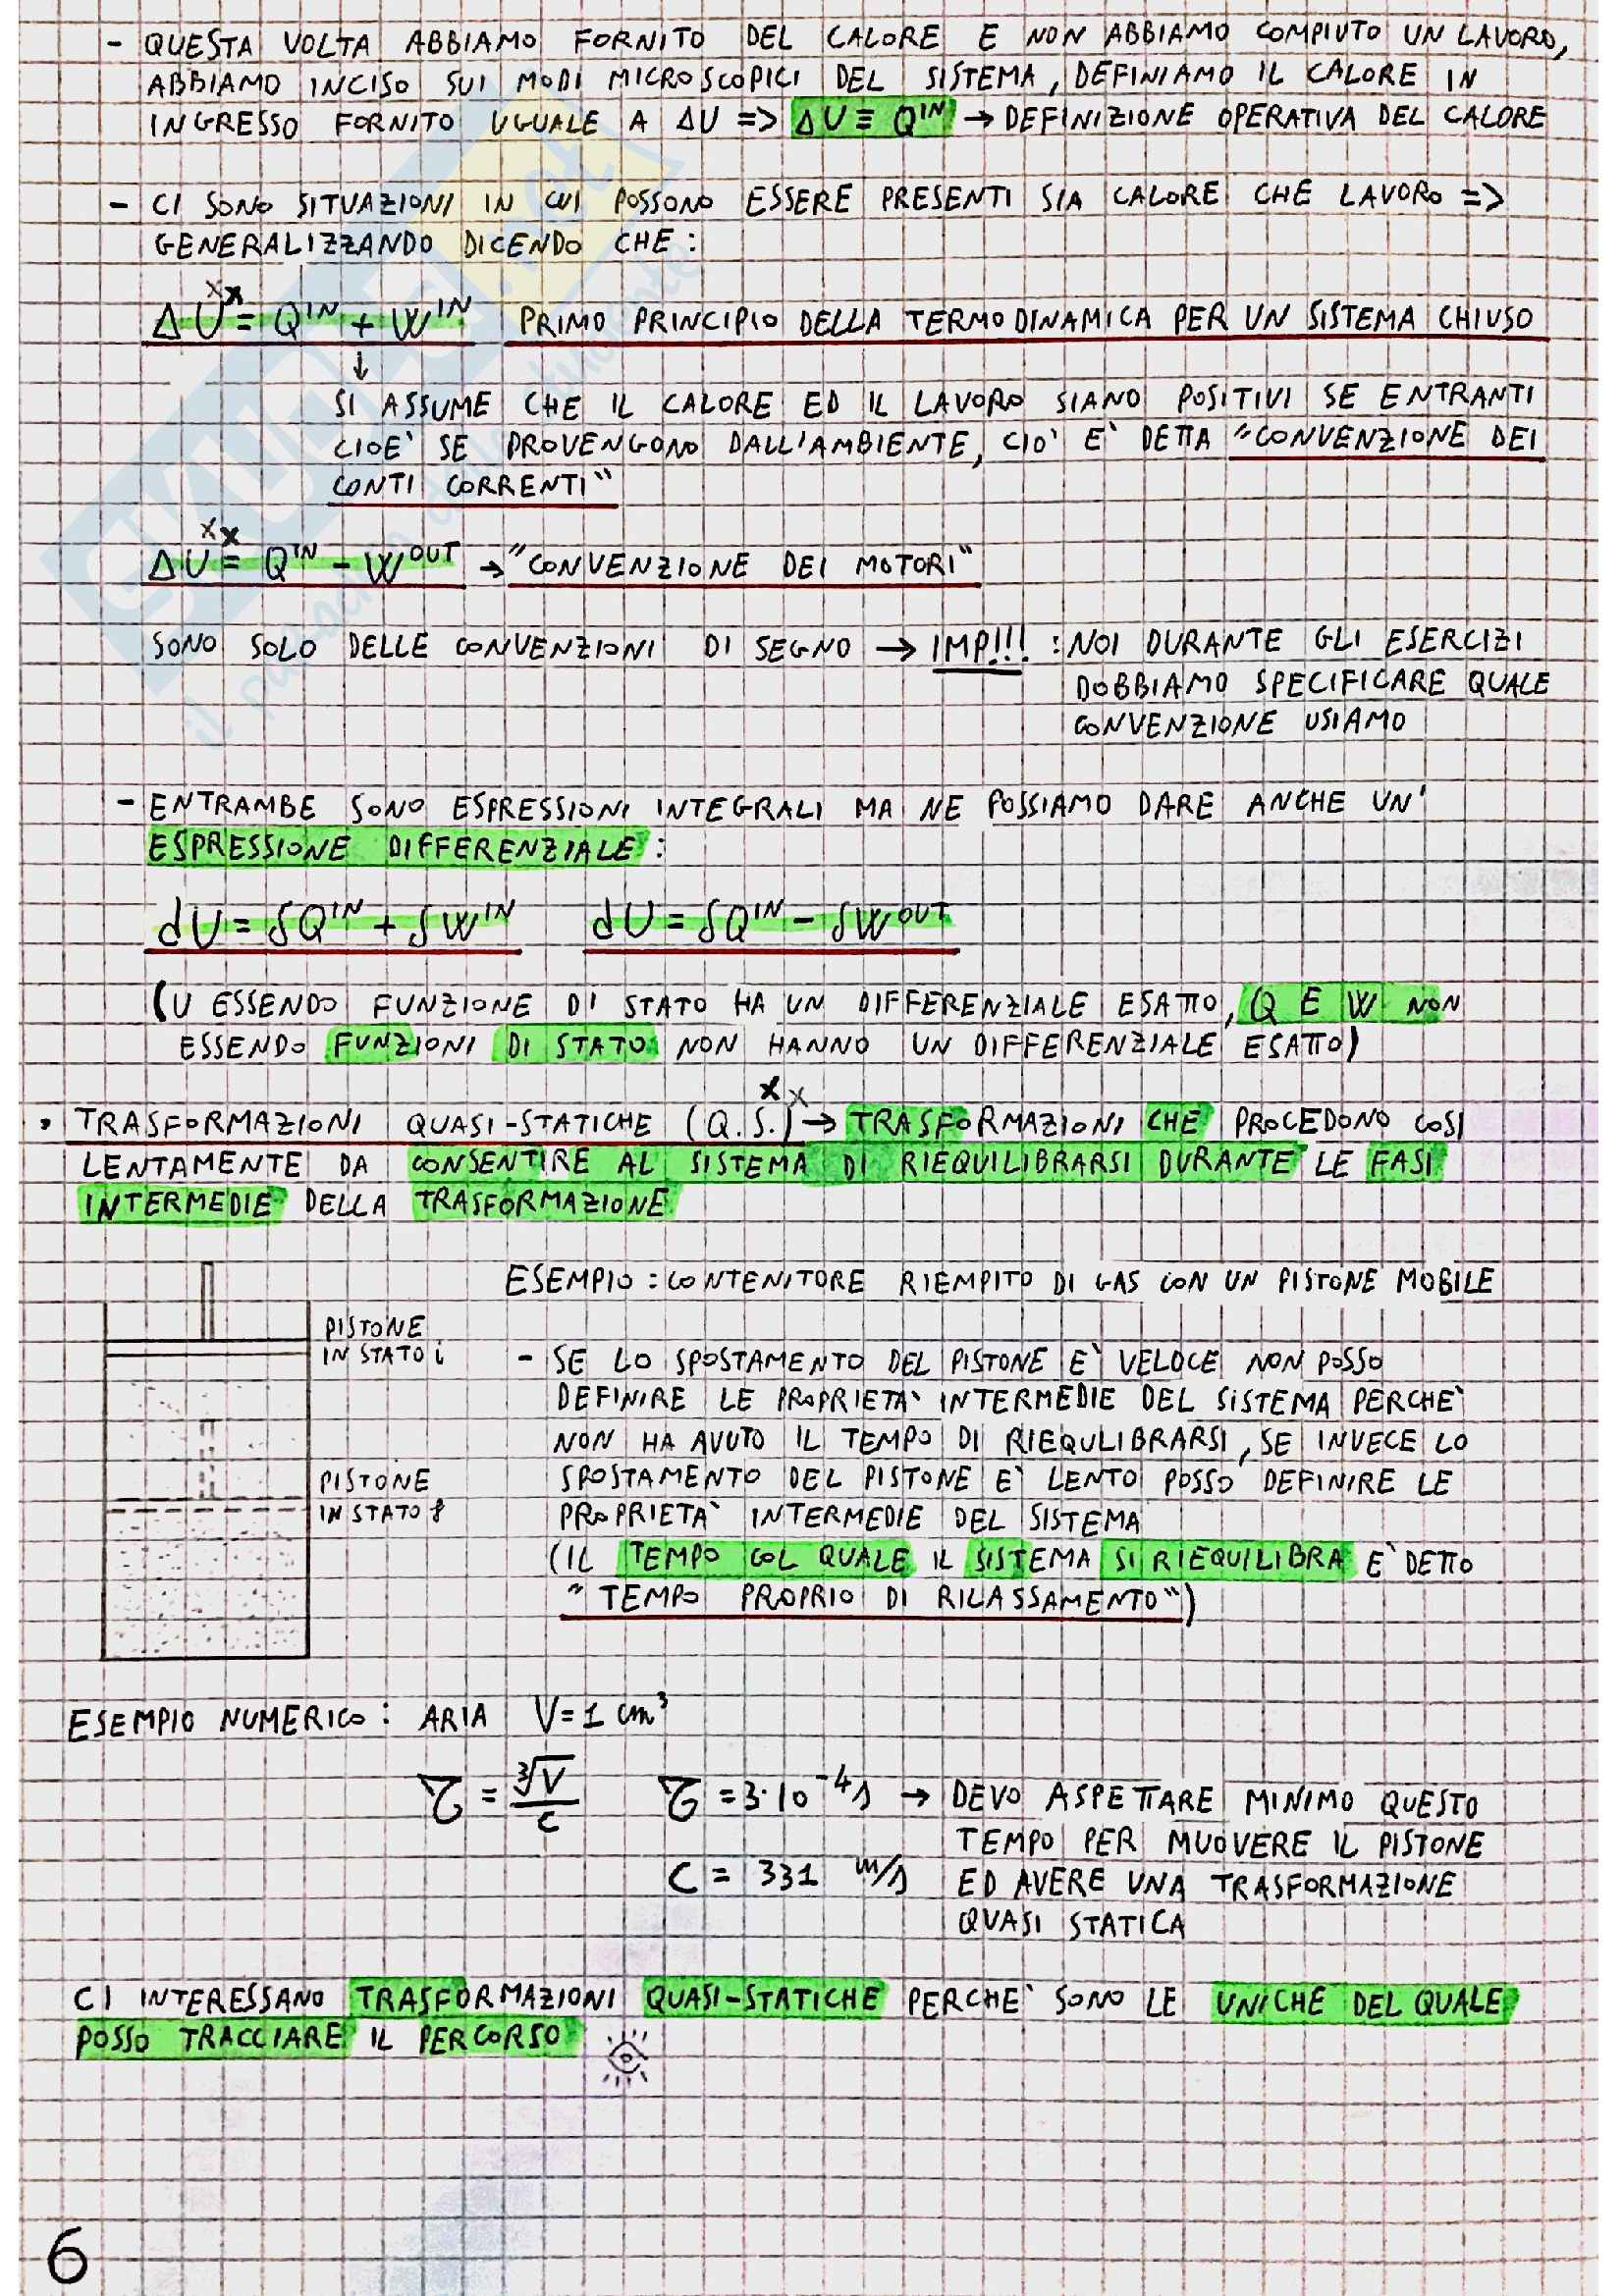 - QUESTA VOLTA ABBIAMO FORNITO DEL CALORE E NON ABBIAMO COMPIUTO UN LAVORO,
ABBIAMO INCISO SUI MODI MICROSCOPICI DEL SISTEMA, DEFINIAMO IL CALORE IN
INGRESSO FORNITO UGUALE A ΔU => ΔU ≡ Q^IN → DEFINIZIONE OPERATIVA DEL CALORE
- CI SONO SITUAZIONI IN CUI POSSONO ESSERE PRESENTI SIA CALORE CHE LAVORO =>
GENERALIZZANDO DICENDO CHE:
xx
ΔU = Q^IN + W^IN PRIMO PRINCIPIO DELLA TERMODINAMICA PER UN SISTEMA CHIUSO
↓
SI ASSUME CHE IL CALORE ED IL LAVORO SIANO POSITIVI SE ENTRANTI
CIOE' SE PROVENGONO DALL'AMBIENTE, CIO' E' DETTA "CONVENZIONE DEI
CONTI CORRENTI"
xx
ΔU = Q^IN - W^OUT → "CONVENZIONE DEI MOTORI"
SONO SOLO DELLE CONVENZIONI DI SEGNO → IMP!!! : NOI DURANTE GLI ESERCIZI
DOBBIAMO SPECIFICARE QUALE
CONVENZIONE USIAMO
- ENTRAMBE SONO ESPRESSIONI INTEGRALI MA NE POSSIAMO DARE ANCHE UN'
ESPRESSIONE DIFFERENZIALE:
dU = δQ^IN + δW^IN dU = δQ^IN - δW^OUT
(U ESSENDO FUNZIONE DI STATO HA UN DIFFERENZIALE ESATTO, Q E W NON
ESSENDO FUNZIONI DI STATO NON HANNO UN DIFFERENZIALE ESATTO)
xx
• TRASFORMAZIONI QUASI-STATICHE (Q.S.) → TRASFORMAZIONI CHE PROCEDONO COSI
LENTAMENTE DA CONSENTIRE AL SISTEMA DI RIEQUILIBRARSI DURANTE LE FASI
INTERMEDIE DELLA TRASFORMAZIONE
ESEMPIO: CONTENITORE RIEMPITO DI GAS CON UN PISTONE MOBILE
PISTONE
IN STATO i
- SE LO SPOSTAMENTO DEL PISTONE E' VELOCE NON POSSO
DEFINIRE LE PROPRIETA' INTERMEDIE DEL SISTEMA PERCHE'
NON HA AVUTO IL TEMPO DI RIEQULIBRARSI, SE INVECE LO
SPOSTAMENTO DEL PISTONE E' LENTO POSSO DEFINIRE LE
PROPRIETA' INTERMEDIE DEL SISTEMA
PISTONE
IN STATO f
(IL TEMPO COL QUALE IL SISTEMA SI RIEQUILIBRA E' DETTO
"TEMPO PROPRIO DI RILASSAMENTO")
ESEMPIO NUMERICO: ARIA V=1 cm³
τ = ∛V / c τ = 3·10^-4 s → DEVO ASPETTARE MINIMO QUESTO
TEMPO PER MUOVERE IL PISTONE
C = 331 m/s ED AVERE UNA TRASFORMAZIONE
QUASI STATICA
CI INTERESSANO TRASFORMAZIONI QUASI-STATICHE PERCHE' SONO LE UNICHE DEL QUALE
POSSO TRACCIARE IL PERCORSO
6